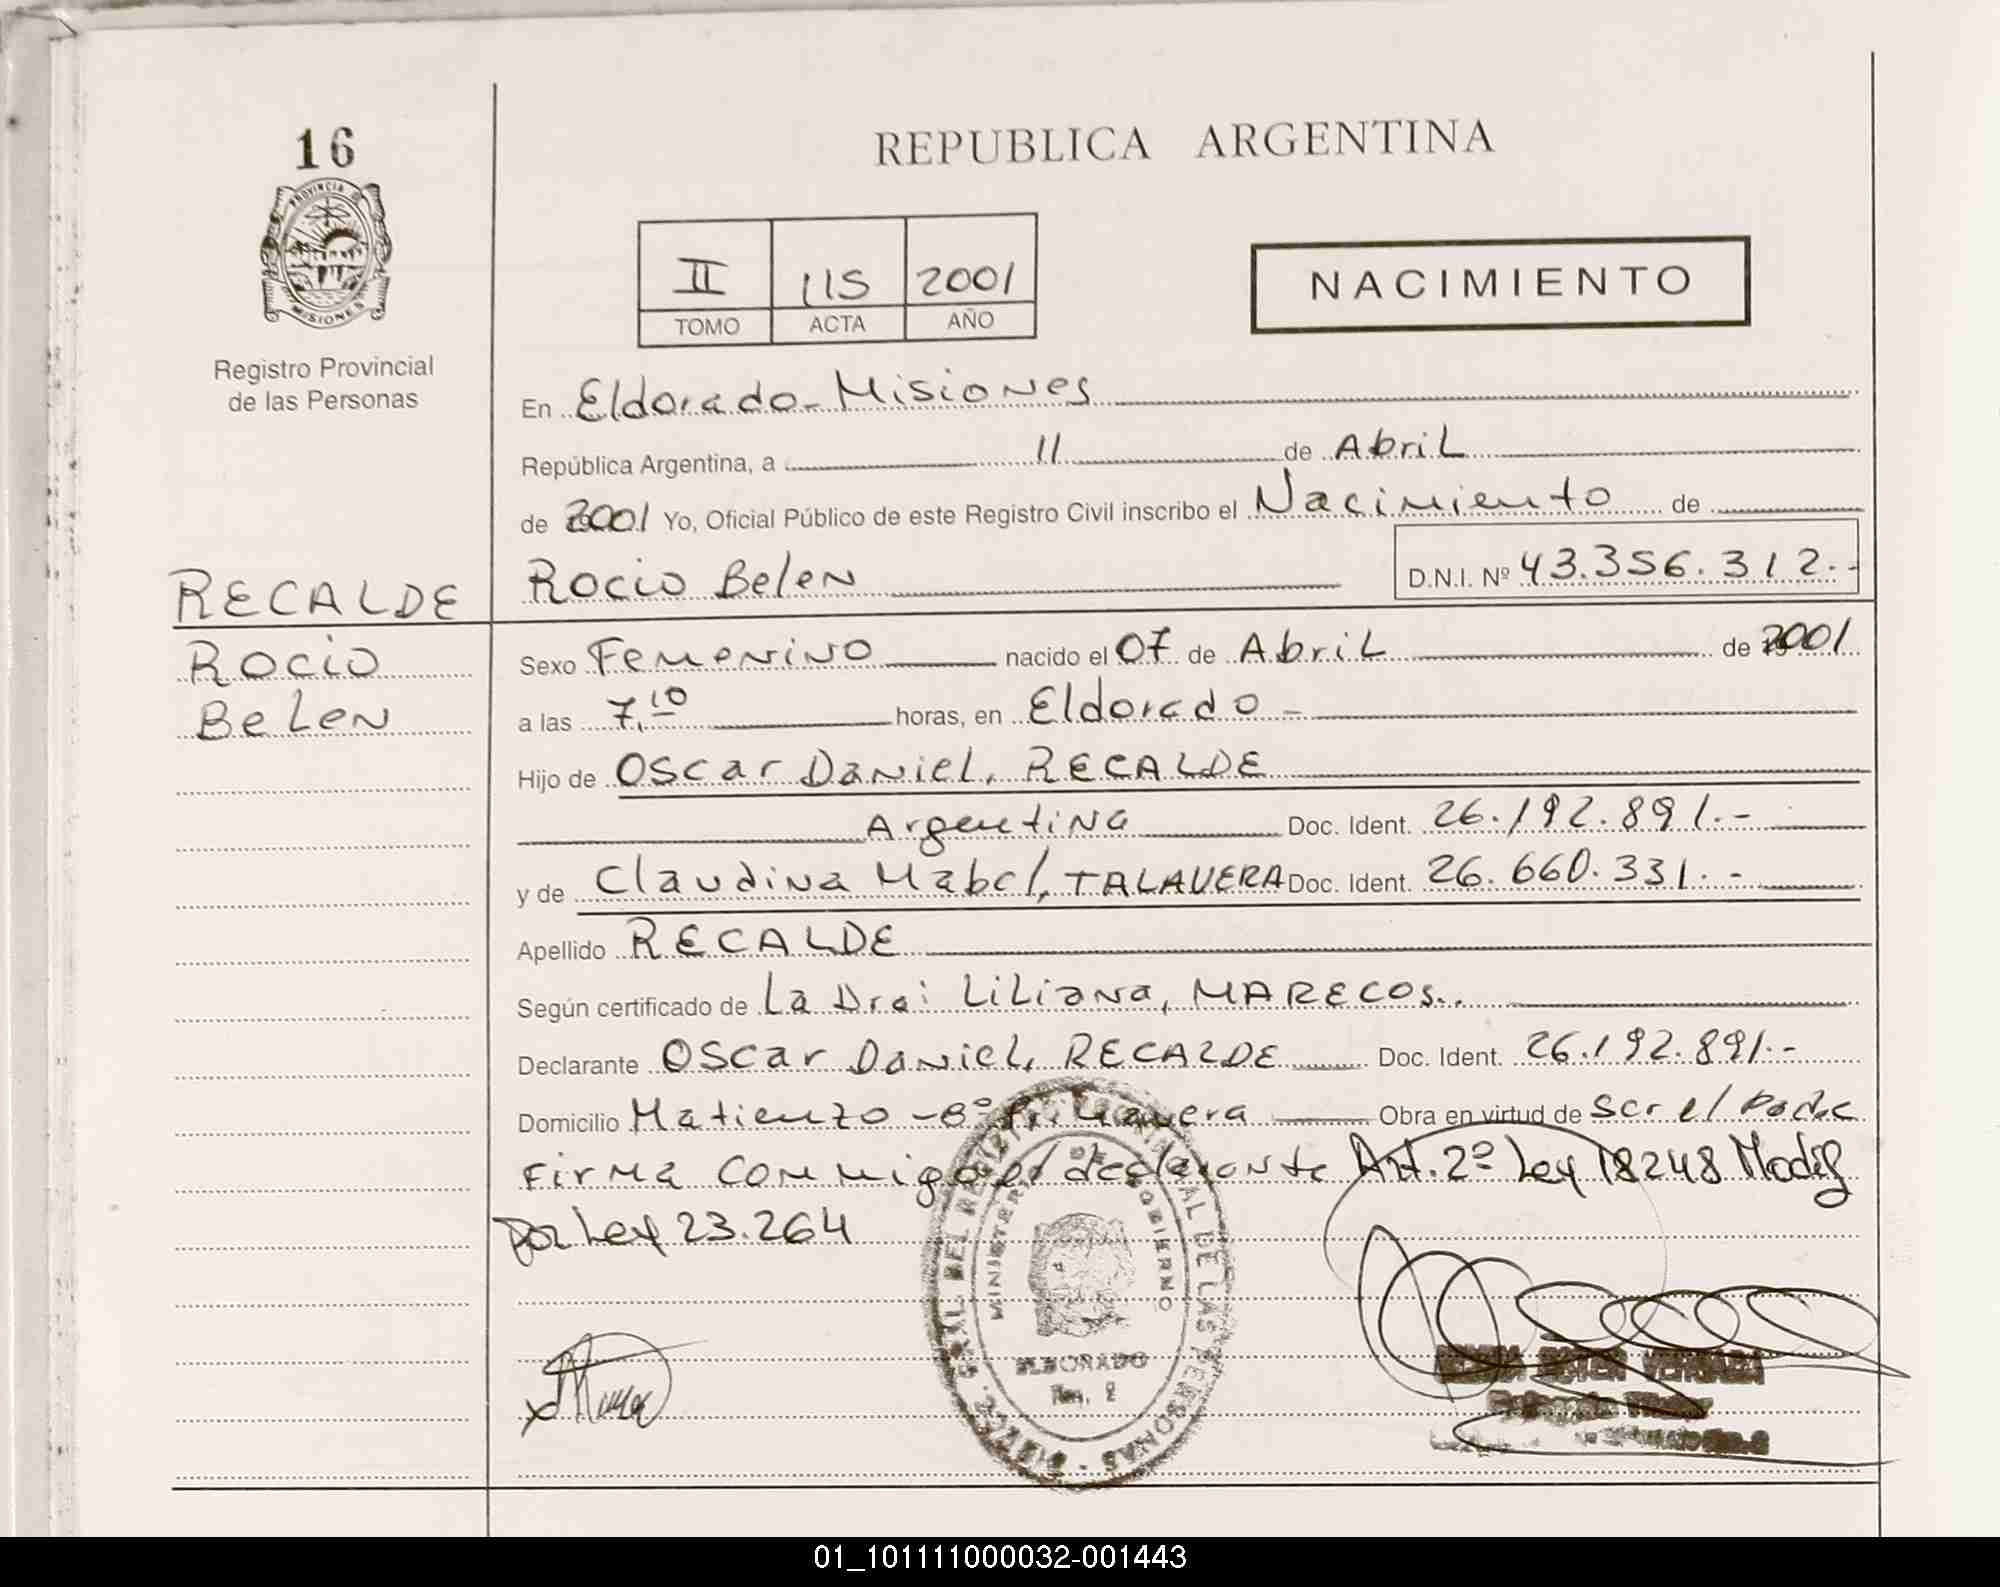 16
PROVINCIA DE
MISIONES
Registro Provincial
de las Personas
REPUBLICA ARGENTINA
II 115 2001
TOMO ACTA AÑO
NACIMIENTO
En Eldorado - Misiones
República Argentina, a 11 de Abril
de 2001 Yo, Oficial Público de este Registro Civil inscribo el Nacimiento de
RECALDE
Rocio Belen D.N.I. Nº 43.356.312.-
Rocio
Belen
Sexo Femenino nacido el 07 de Abril de 2001
a las 7,10 horas, en Eldorado -
Hijo de Oscar Daniel, RECALDE
Argentina Doc. Ident. 26.192.891.-
y de Claudina Mabel, TALAVERA Doc. Ident. 26.660.331.-
Apellido RECALDE
Según certificado de La Dra: Liliana, MARECOS..
Declarante Oscar Daniel, RECALDE Doc. Ident. 26.192.891.-
Domicilio Matienzo - Bº Primavera Obra en virtud de ser el padre
Firma conmigo el declarante Art. 2º Ley 18248 Modif
por Ley 23.264
GRAL. DEL REGISTRO PROVINCIAL DE LAS PERSONAS
MINISTERIO DE GOBIERNO
ELDORADO
01_101111000032-001443